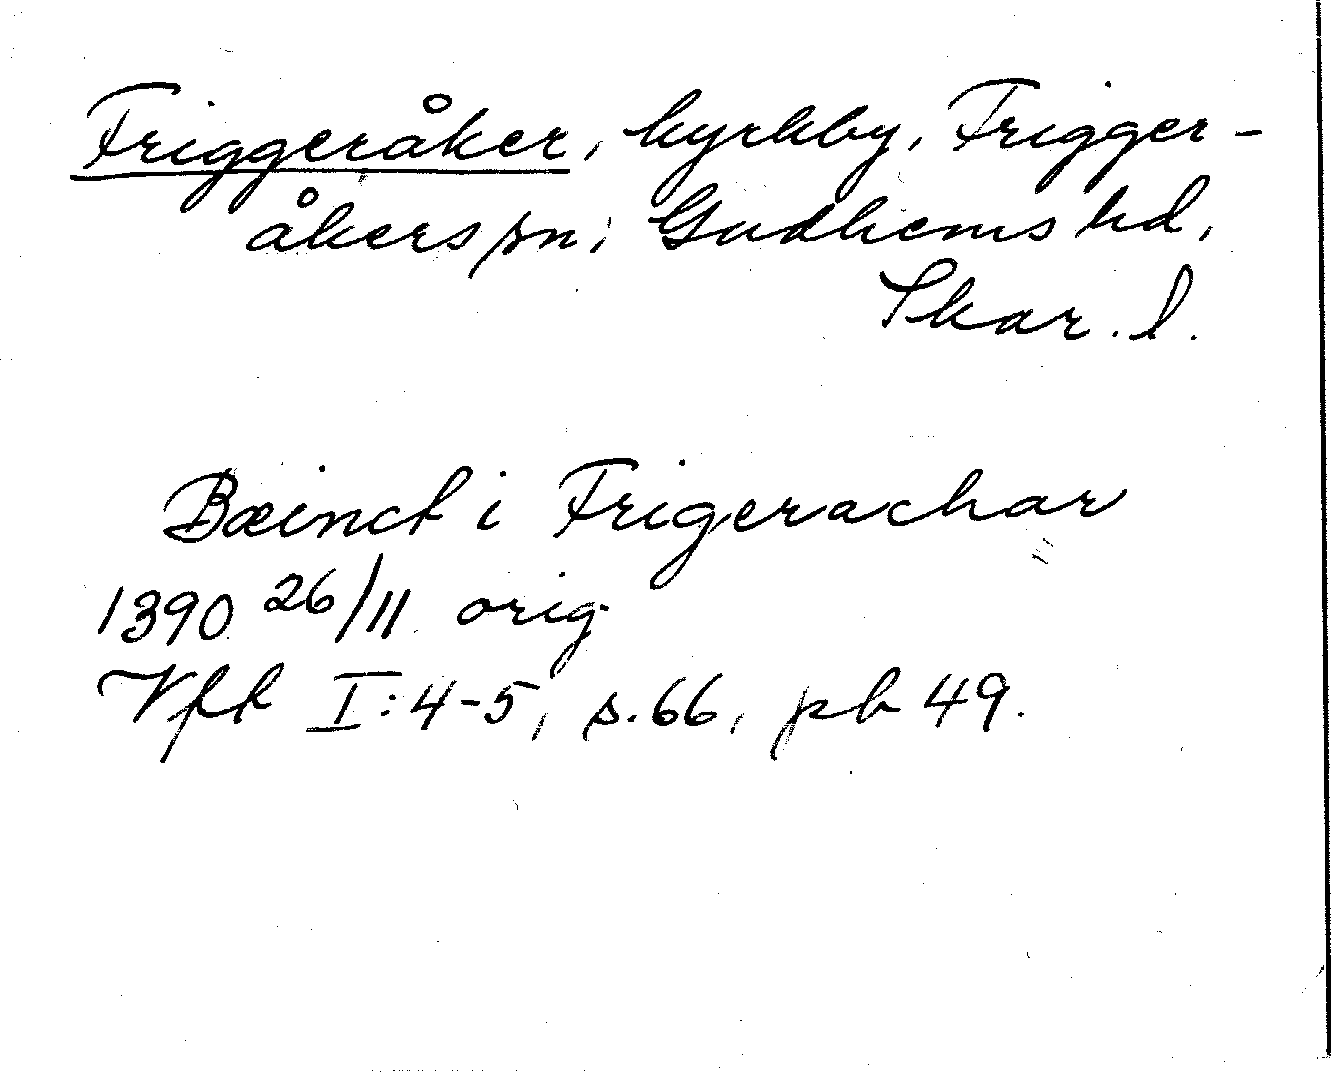 Friggeråker, kyrkby, Frigger-
åkers sn, Gudhems hd,
Skar. l.
Bæinct i Frigerachar
1390 26/11 orig
Vft I:4-5, s.66, pb 49.